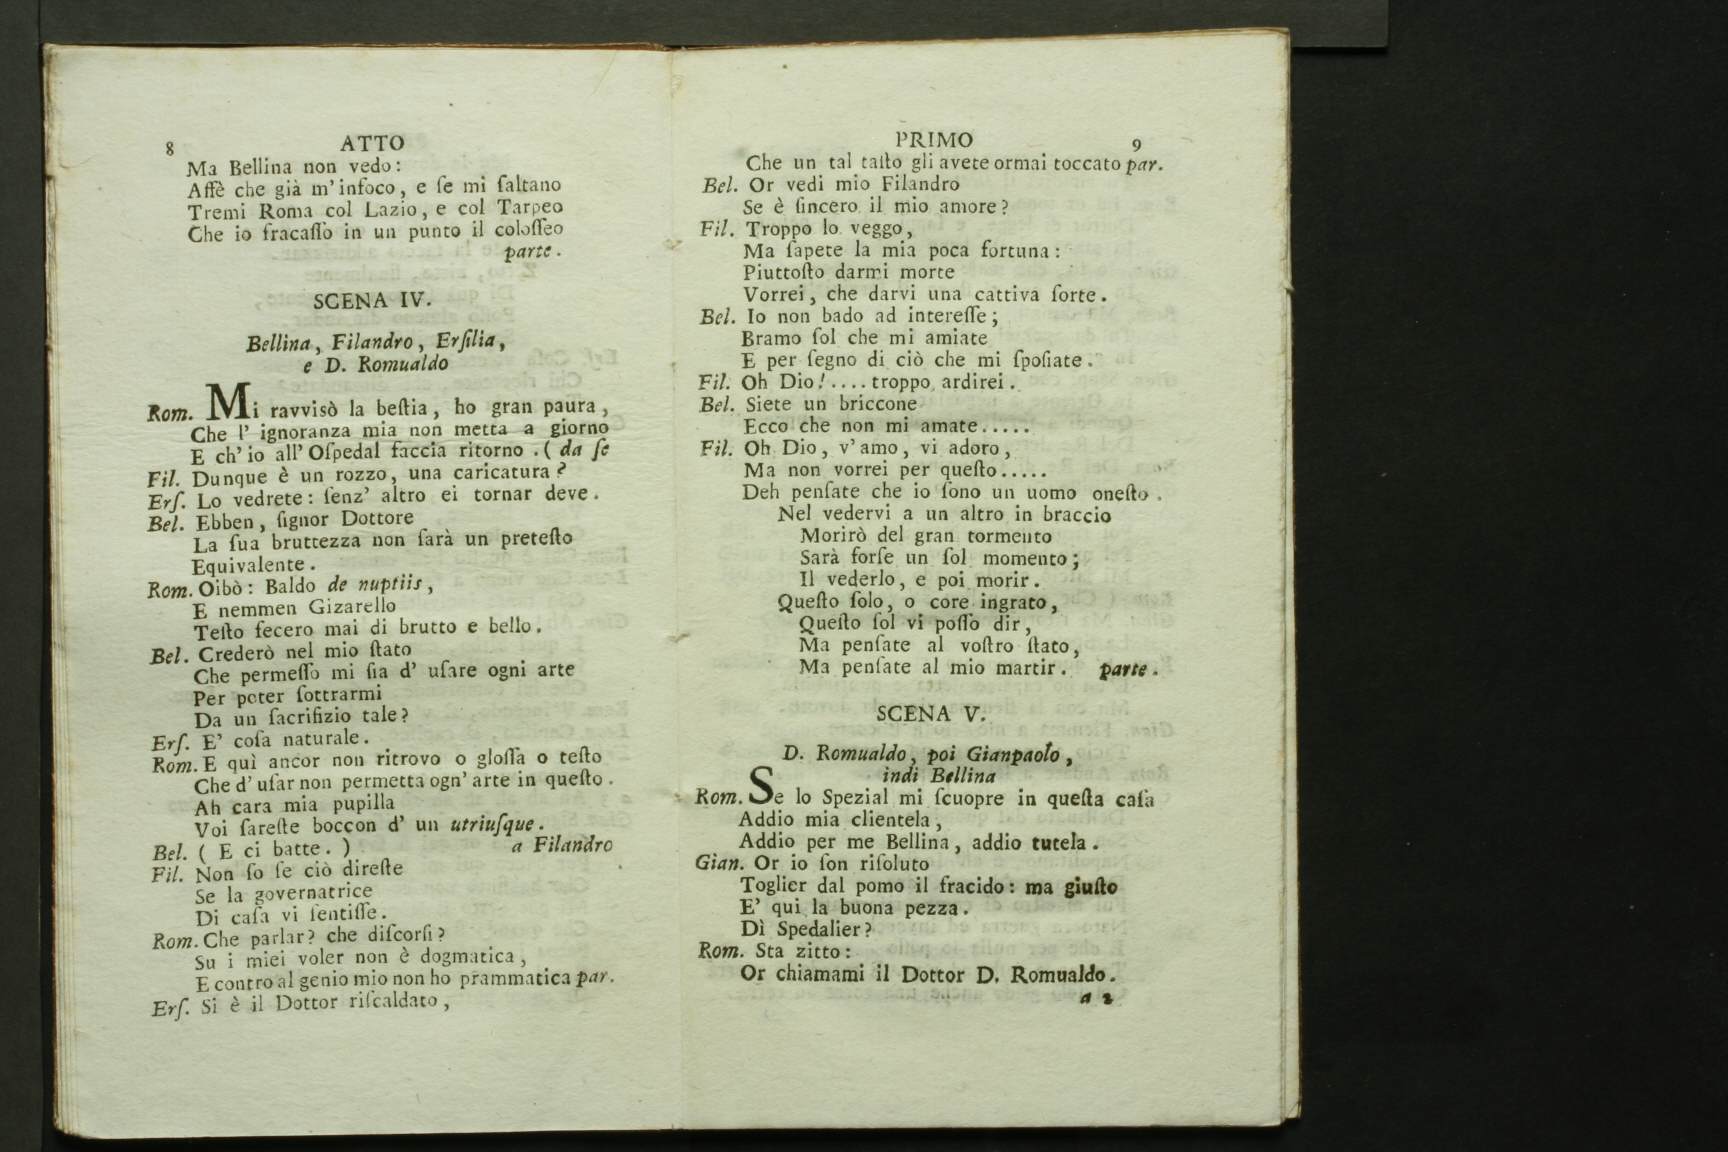 8 ATTO
Ma Bellina non vedo:
Affè che già m'infoco, e ſe mi ſaltano
Tremi Roma col Lazio, e col Tarpeo
Che io fracaſſo in un punto il coloſſeo
parte.
SCENA IV.
Bellina, Filandro, Erſilia,
e D. Romualdo
Rom. Mi ravvisò la beſtia, ho gran paura,
Che l' ignoranza mia non metta a giorno
E ch' io all' Oſpedal faccia ritorno. ( da ſe
Fil. Dunque è un rozzo, una caricatura?
Erſ. Lo vedrete: ſenz' altro ei tornar deve.
Bel. Ebben, ſignor Dottore
La ſua bruttezza non ſarà un preteſto
Equivalente.
Rom. Oibò: Baldo de nuptiis,
E nemmen Gizarello
Teſto fecero mai di brutto e bello.
Bel. Crederò nel mio ſtato
Che permeſſo mi ſia d' uſare ogni arte
Per poter ſottrarmi
Da un ſacrifizio tale?
Erſ. E' coſa naturale.
Rom. E quì ancor non ritrovo o gloſſa o teſto
Che d' uſar non permetta ogn' arte in queſto.
Ah cara mia pupilla
Voi ſareſte boccon d' un utriuſque.
Bel. ( E ci batte. ) a Filandro
Fil. Non ſo ſe ciò direſte
Se la governatrice
Di caſa vi ſentiſſe.
Rom. Che parlar? che diſcorſi?
Su i miei voler non è dogmatica,
E contro al genio mio non ho prammatica par.
Erſ. Si è il Dottor riſcaldato,
PRIMO 9
Che un tal taſto gli avete ormai toccato par.
Bel. Or vedi mio Filandro
Se è ſincero il mio amore?
Fil. Troppo lo veggo,
Ma ſapete la mia poca fortuna:
Piuttoſto darmi morte
Vorrei, che darvi una cattiva ſorte.
Bel. Io non bado ad intereſſe;
Bramo ſol che mi amiate
E per ſegno di ciò che mi ſpoſiate.
Fil. Oh Dio!.... troppo ardirei.
Bel. Siete un briccone
Ecco che non mi amate.....
Fil. Oh Dio, v' amo, vi adoro,
Ma non vorrei per queſto.....
Deh penſate che io ſono un uomo oneſto.
Nel vedervi a un altro in braccio
Morirò del gran tormento
Sarà forſe un ſol momento;
Il vederlo, e poi morir.
Queſto ſolo, o core ingrato,
Queſto ſol vi poſſo dir,
Ma penſate al voſtro ſtato,
Ma penſate al mio martir. parte.
SCENA V.
D. Romualdo, poi Gianpaolo,
indi Bellina
Rom. Se lo Spezial mi ſcuopre in queſta caſa
Addio mia clientela,
Addio per me Bellina, addio tutela.
Gian. Or io ſon riſoluto
Toglier dal pomo il fracido: ma giuſto
E' qui la buona pezza.
Dì Spedalier?
Rom. Sta zitto:
Or chiamami il Dottor D. Romualdo.
a 2